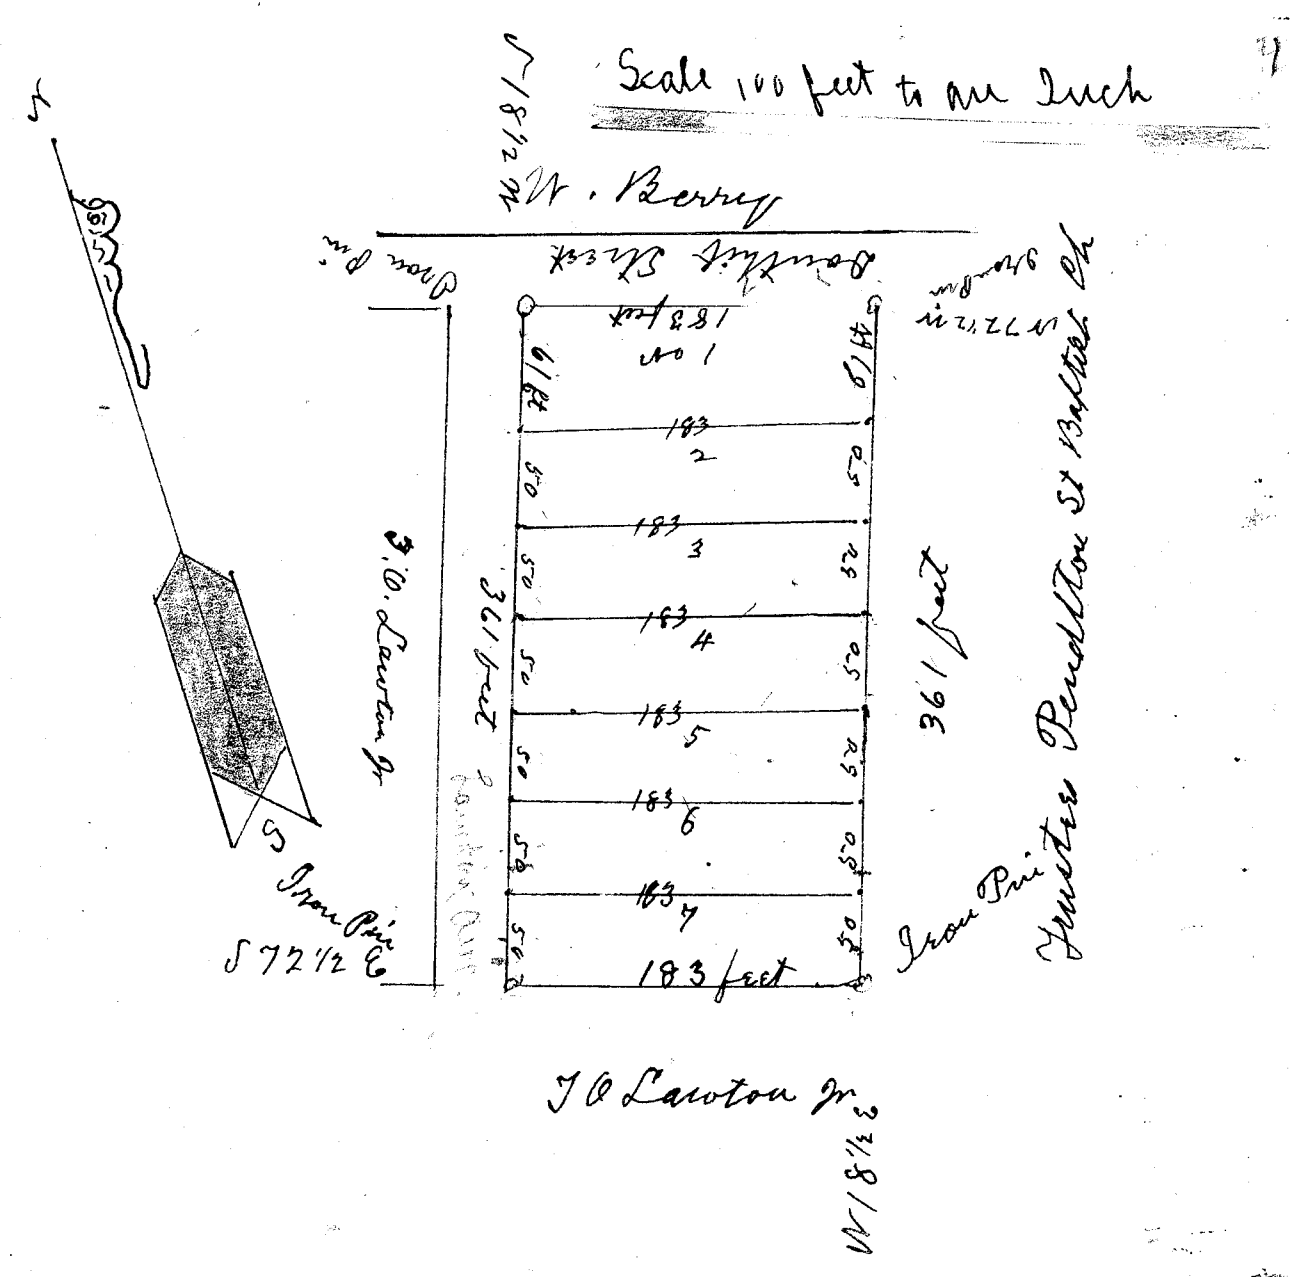 Scale 100 feet to an Inch
S 18 1/2 W
W. Berry
Douthit Street
Iron Pin
Iron Pin
N 72 1/2 W
183 feet
1 on
61 ft
61 ft
183
2
50
50
183
3
50
50
183
4
50
50
183
5
50
50
183
6
50
50
183
7
50
50
183 feet
361 feet
361 feet
T.O. Lawton Jr
Lawton Ave.
Trustees Pendleton St Baptist Ch
S
Iron Pin
S 72 1/2 E
Iron Pin
T O Lawton Jr
N 18 1/2 E